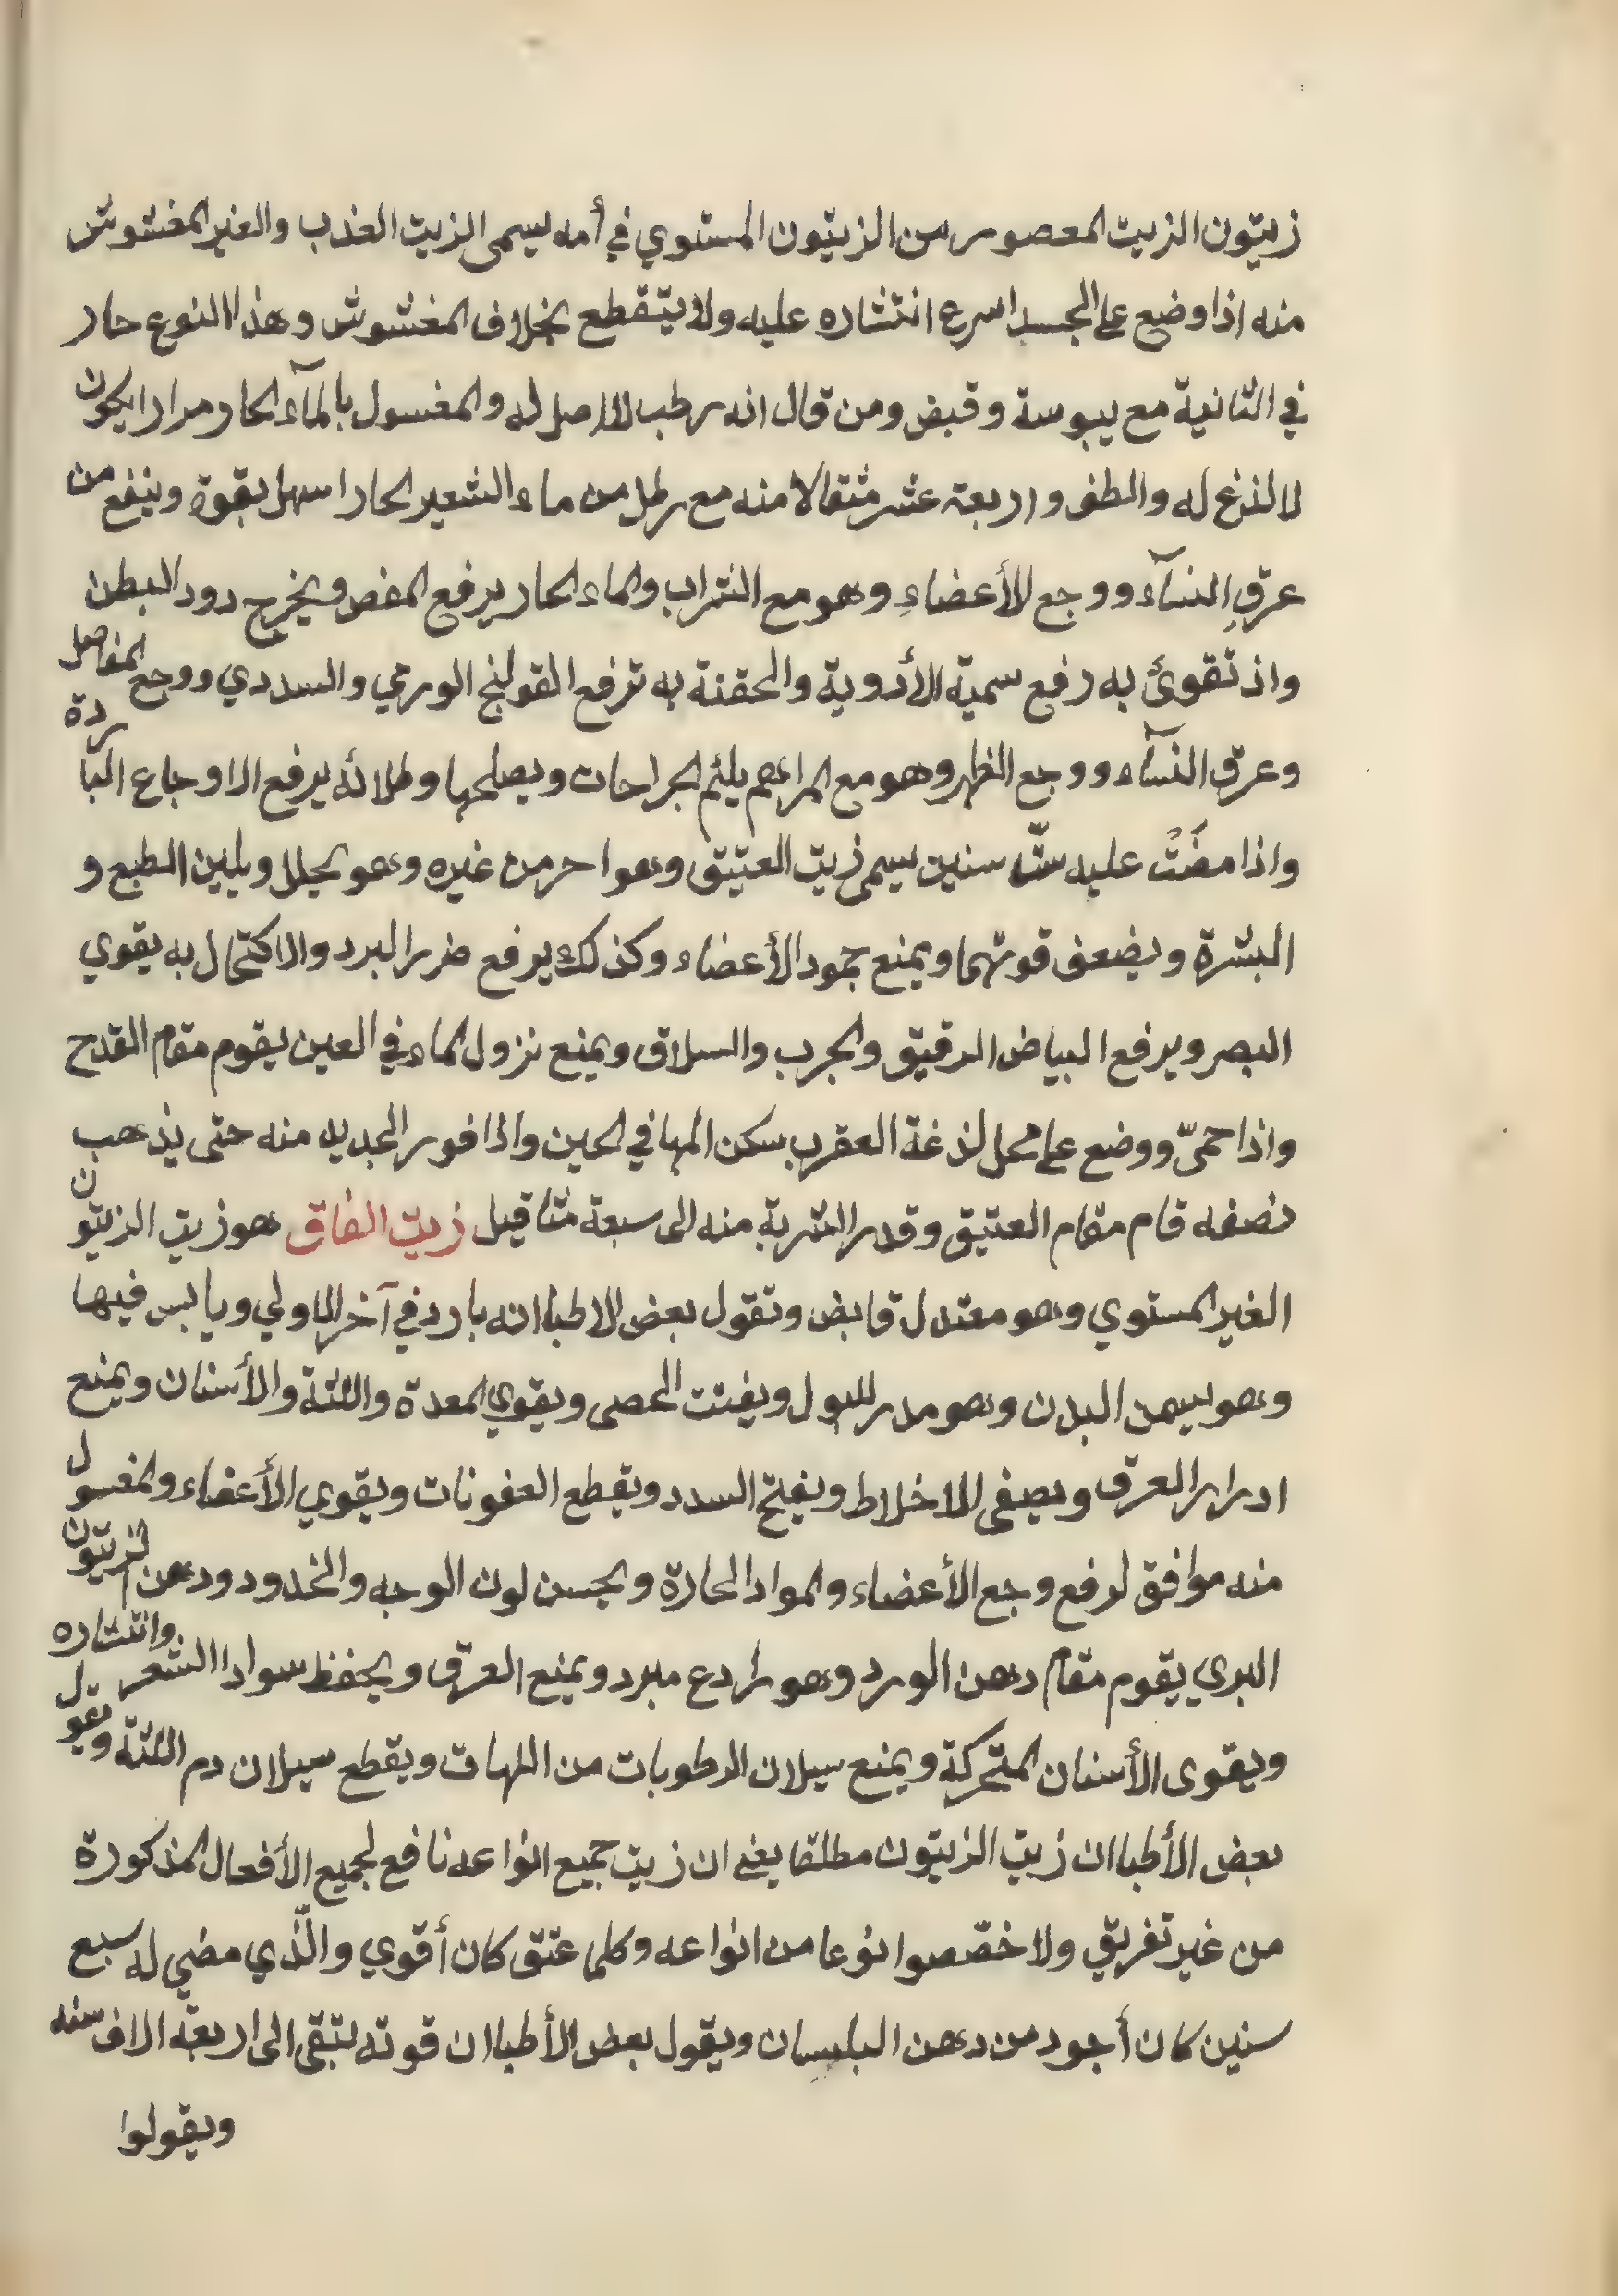 زيتون الزيت المعصور من الزيتون المستوي في أمه يسمى الزيت العذب والغير المغشوش
منه اذا وضع على الجسد اسرع انتشاره عليه ولا يتقطع بخلاف المغشوش وهذا النوع حار
في الثانية مع يبوسة وقبض ومن قال انه رطب لا اصل له والمغسول بالمآء الحار مرارا يكون
لا لذغ له والطف واربعة عشر مثقالا منه مع رطل من ماء الشعير الحار اسهل بقوة وينفع من
عرقِ النسآء ووجع الأعضاءِ وهو مع الشراب والماء الحار يرفع المغص ويخرج دود البطن
واذ تقوئ به رفع سمية الأدوية والحقنة به ترفع القولنج الورمي والسددي ووجع المفاصل
وعرق النسآء ووجع الظهر وهو مع المراهم يلئم الجراحات ويصلحها وطلائه يرفع الاوجاع الباردة
واذا مضَتْ عليه ستّ سنين يسمى زيت العتيق وهو احر من غيره وهو يحلل ويلين الطبع و
البشرة ويضعف قوتهما ويمنع جمود الأعضاء وكذلك يرفع ضرر البرد والاكتحال به يقوي
البصر ويرفع البياض الرقيق والجرب والسلاق ويمنع نزول الماء في العين يقوم مقام القدح
واذا حمىّ ووضع على محل لذغة العقرب سكن المها في الحين واذا فور الجديد منه حتى يذهب
نصفه قام مقام العتيق وقدر الشربة منه الى سبعة مثاقيل زيت انفاق هو زيت الزيتون
الغير المستوي وهو معتدل قابض وتقول بعض الاطبا انه بارد في آخر الاولي ويابس فيها
وهو يسمن البدن وهو مدر للبول ويفتت الحصى ويقوي المعدة واللثة والأسنان ويمنع
ادرار العرق ويصفى الاخلاط ويفتح السدد ويقطع العفونات ويقوي الأعضاء والمغسول
منه موافق لرفع وجع الأعضاء والمواد الحارة ويحسن لون الوجه والخدود ودهن الزيتون
البري يقوم مقام دهن الورد وهو رادع مبرد ويمنع العرق ويحفظ سواد الشعر وانتشاره
ويقوى الأسنان المتحركة ويمنع سيلان الرطوبات من اللهات ويقطع سيلان دم اللثة وتقول
بعض الأطبا ان زيت الزيتون مطلقا يغني ان زيت جميع انواعه نافع لجميع الأفعال المذكورة
من غير تفريق ولا خصّصوا نوعا من انواعه وكلما عتق كان أقوي والّذي مضي له سبع
سنين كان أجود من دهن البلسان ويقول بعض الأطبا ان قوته تبقى الى اربعة الاف سنه
ويقولوا